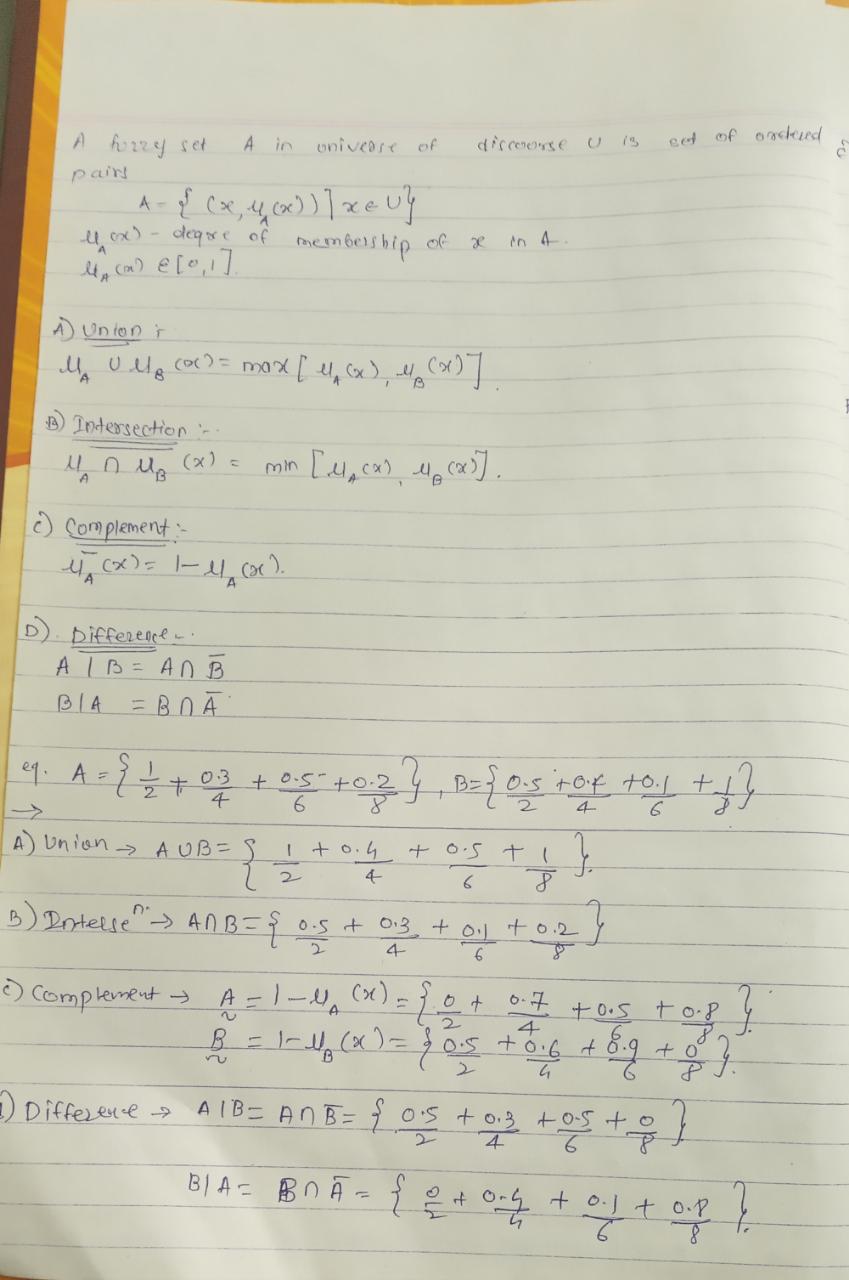 A fuzzy set A in universe of discourse U is set of ordered
pairs
A = { (x, μ_A(x)) | x ∈ U }
μ_A(x) - degree of membership of x in A.
μ_A(x) ∈ [0,1].
A) Union :
μ_A ∪ μ_B (x) = max [ μ_A(x), μ_B(x) ].
B) Intersection :-
μ_A ∩ μ_B (x) = min [ μ_A(x), μ_B(x) ].
C) Complement :-
μ_Ā (x) = 1 - μ_A (x).
D). Difference -.
A | B = A ∩ B̄
B | A = B ∩ Ā
eg. A = { 1/2 + 0.3/4 + 0.5/6 + 0.2/8 }, B = { 0.5/2 + 0.4/4 + 0.1/6 + 1/8 }
→
A) Union → A ∪ B = { 1/2 + 0.4/4 + 0.5/6 + 1/8 }.
B) Interseⁿ· → A ∩ B = { 0.5/2 + 0.3/4 + 0.1/6 + 0.2/8 }
C) Complement → A̰ = 1 - μ_A (x) = { 0/2 + 0.7/4 + 0.5/6 + 0.8/8 }.
B̰ = 1 - μ_B (x) = { 0.5/2 + 0.6/4 + 0.9/6 + 0/8 }.
) Difference → A | B = A ∩ B̄ = { 0.5/2 + 0.3/4 + 0.5/6 + 0/8 }
B | A = B ∩ Ā = { 0/2 + 0.4/4 + 0.1/6 + 0.8/8 }.